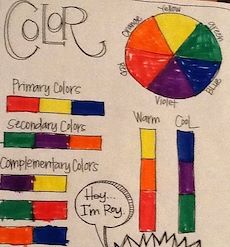 COLOR
Yellow
Orange
green
RED
Blue
Violet
Primary Colors
Secondary Colors
Complementary Colors
Warm
Cool
Hey...
I'm Roy.